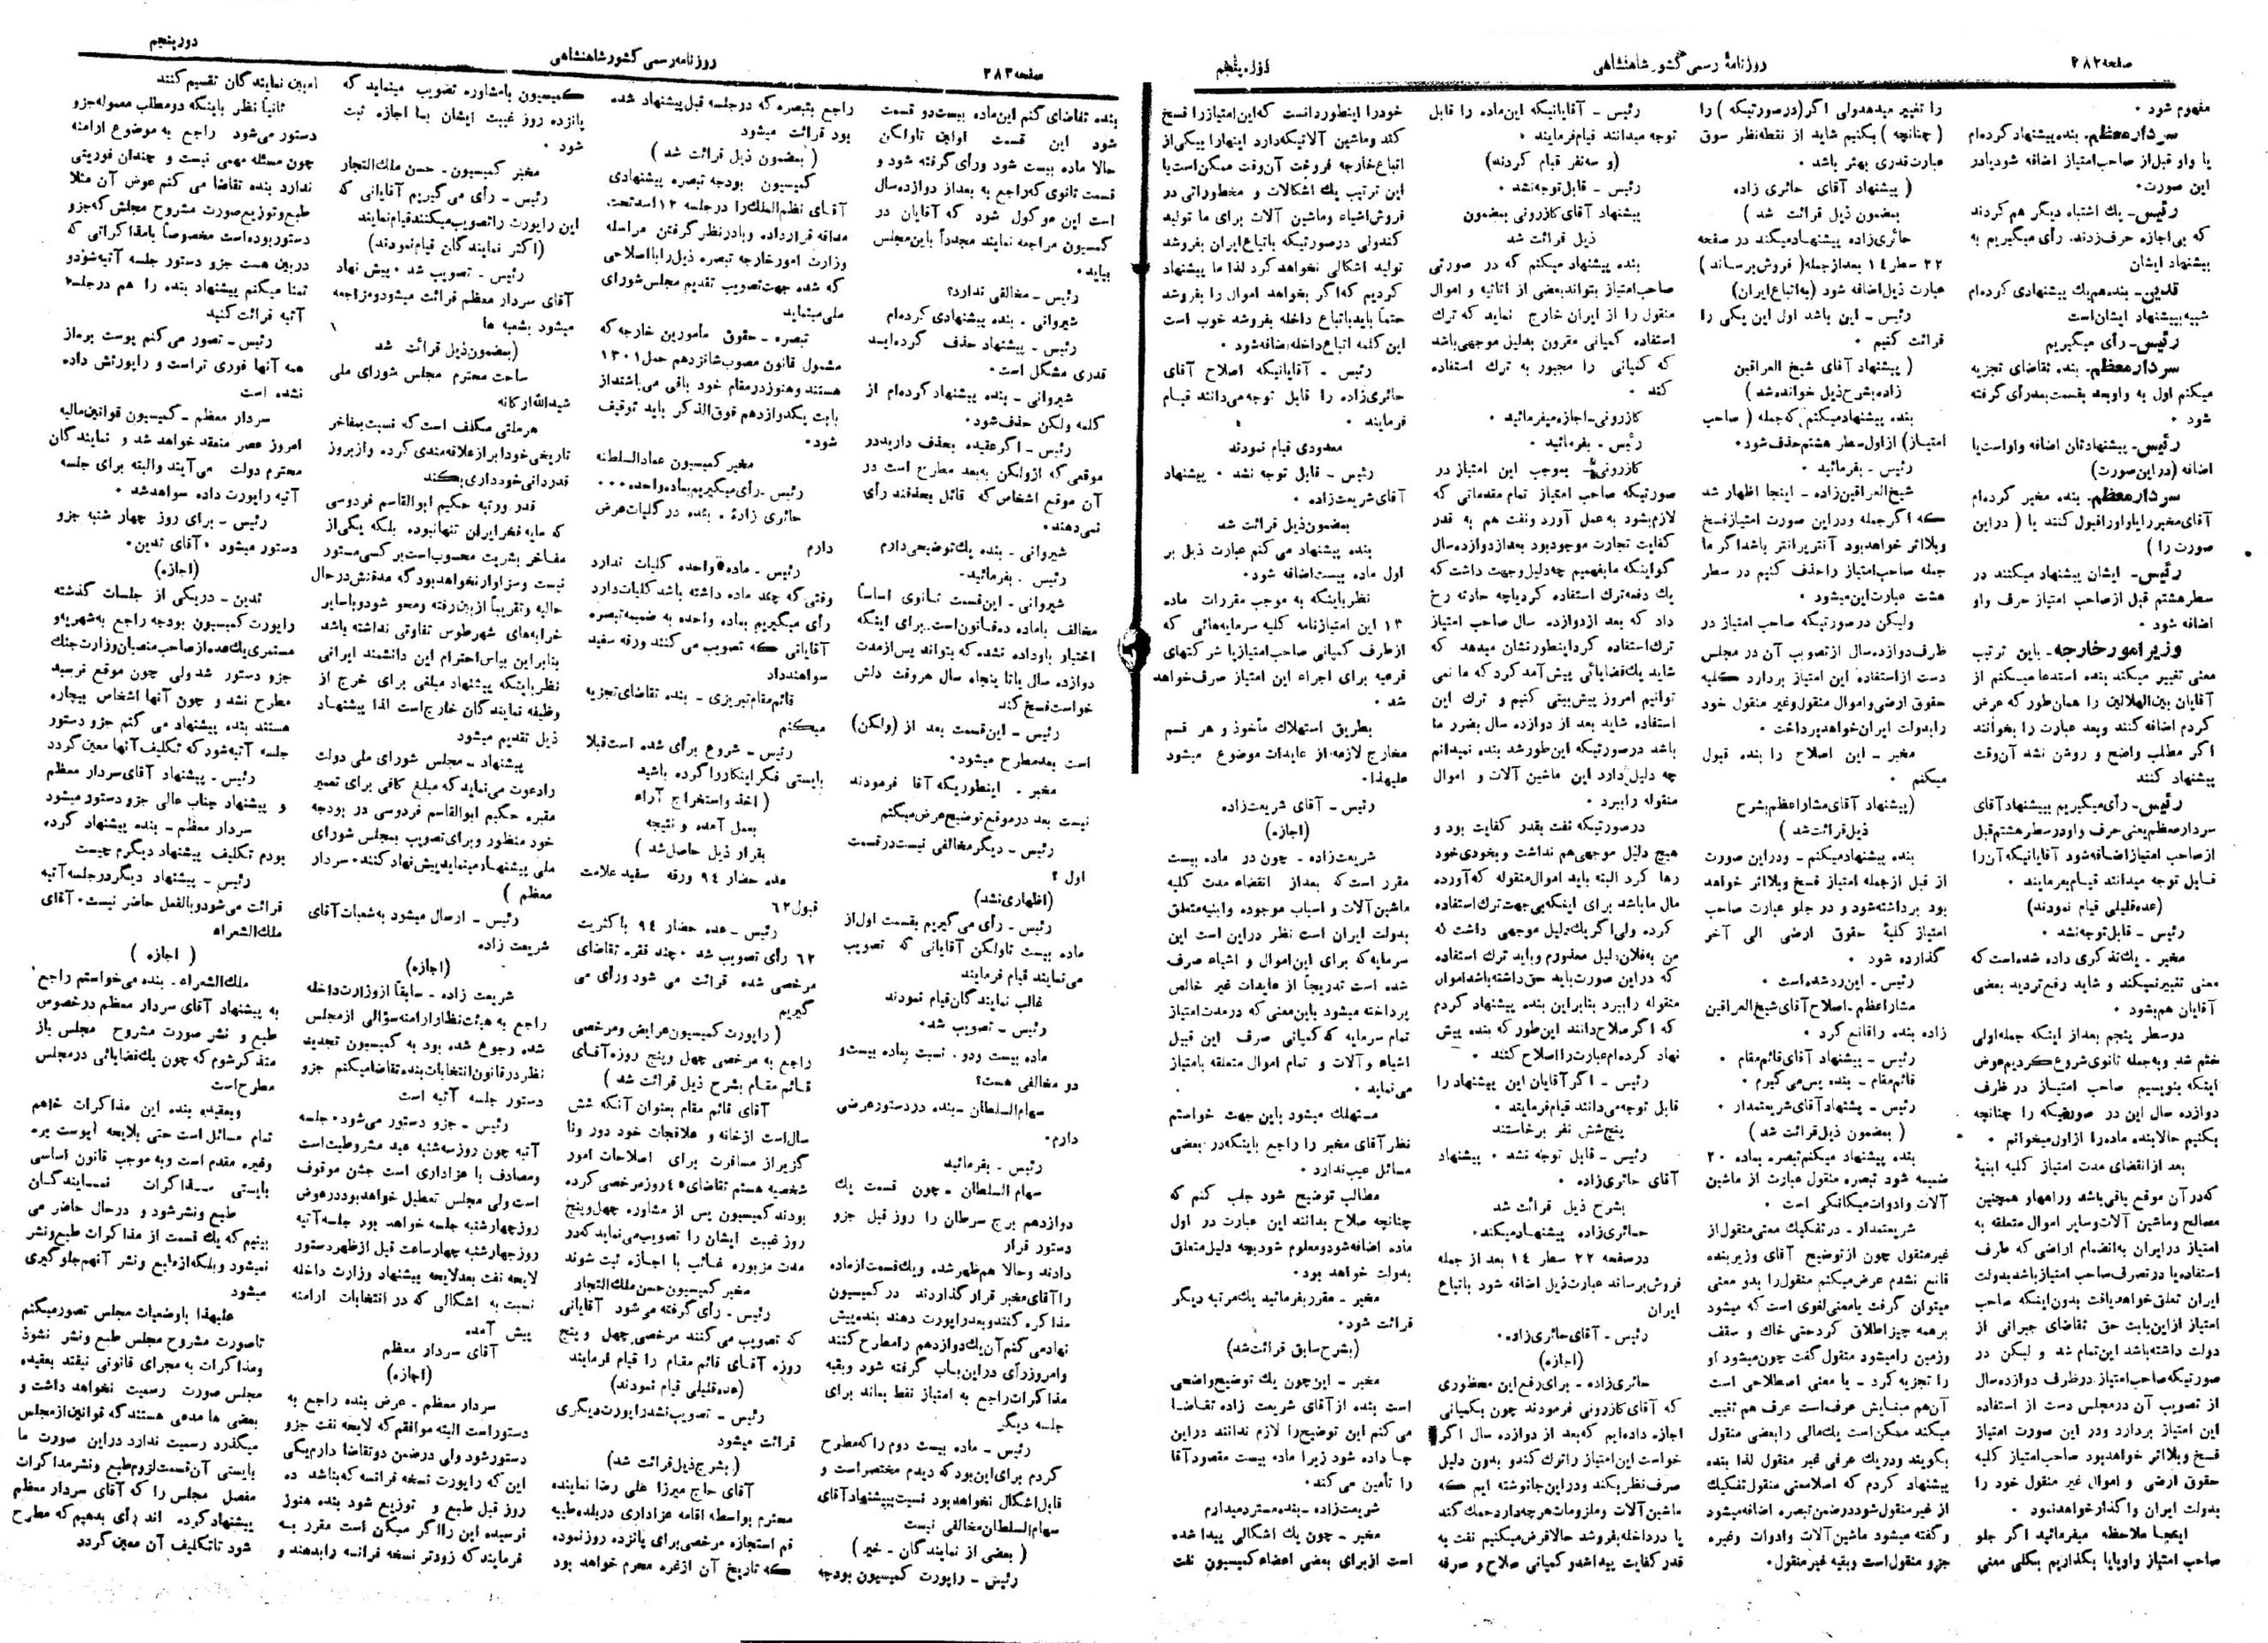 صفحه ۲۸۲
روزنامهٔ رسمی کشور شاهنشاهی
دوره پنجم
مفهوم شود .
سردار معظم - بنده پیشنهاد کرده‌ام
یا واو قبل از صاحب امتیاز اضافه شود یا در
این صورت .
رئیس - یك اشتباه دیگر هم کردند
که بی اجازه حرف زدند. رأی میگیریم به
پیشنهاد ایشان
تدین - بنده هم یك پیشنهادی کرده‌ام
شبیه پیشنهاد ایشان است
رئیس - رأی میگیریم
سردار معظم - بنده تقاضای تجزیه
میکنم اول به واو بعد بقسمت بعد رأی گرفته
شود .
رئیس - پیشنهادتان اضافه واو است یا
اضافه (در این صورت)
سردار معظم - بنده مخیر کرده‌ام
آقای مخبر را یا واو را قبول کنند یا ( در این
صورت را )
رئیس - ایشان پیشنهاد میکنند در
سطر هشتم قبل از صاحب امتیاز حرف واو
اضافه شود .
وزیر امور خارجه - باین ترتیب
معنی تغییر میکند بنده استدعا میکنم از
آقایان بین الهلالین را همان طور که عرض
کردم اضافه کنند و بعد عبارت را بخوانند
اگر مطلب واضح و روشن نشد آن وقت
پیشنهاد کنند
رئیس - رأی میگیریم بپیشنهاد آقای
سردار معظم یعنی حرف واو در سطر هشتم قبل
از صاحب امتیاز اضافه شود آقایانیکه آن را
قابل توجه میدانند قیام بفرمایند .
(عده قلیلی قیام نمودند)
رئیس - قابل توجه نشد .
مخبر - یك تذکری داده شده است که
معنی تغییر نمیکند و شاید رفع تردید بعضی
آقایان هم بشود .
در سطر پنجم بعد از اینکه جمله اولی
ختم شد و به جمله ثانوی شروع کردیم عوض
اینکه بنویسیم صاحب امتیاز در ظرف
دوازده سال این در صورتیکه را چنانچه
بکنیم حالا بنده ماده را از اول میخوانم .
بعد از انقضای مدت امتیاز کلیه ابنیهٔ
که در آن موقع باقی باشد و راهها و همچنین
مصالح و ماشین آلات و سایر اموال متعلقه به
امتیاز در ایران به انضمام اراضی که طرف
استفاده یا در تصرف صاحب امتیاز باشد بدولت
ایران تعلق خواهد یافت بدون اینکه صاحب
امتیاز از این بابت حق تقاضای جبرانی از
دولت داشته باشد این تمام شد و لیکن در
صورتیکه صاحب امتیاز در ظرف دوازده سال
از تصویب آن در مجلس دست از استفاده
این امتیاز بردارد و در این صورت امتیاز
فسخ و بلا اثر خواهد بود صاحب امتیاز کلیه
حقوق ارضی و اموال غیر منقول خود را
بدولت ایران واگذار خواهد نمود .
اینجا ملاحظه میفرمائید اگر جلو
صاحب امتیاز واو یا یا بگذاریم بکلی معنی
را تغییر میدهد ولی اگر (در صورتیکه ) را
( چنانچه ) بکنیم شاید از نقطه نظر سوق
عبارت قدری بهتر باشد .
( پیشنهاد آقای حائری زاده
بمضمون ذیل قرائت شد )
حائری زاده پیشنهاد میکند در صفحه
۲۲ سطر ۱۴ بعد از جمله( فروش برساند )
عبارت ذیل اضافه شود (به اتباع ایران)
رئیس - این باشد اول این یکی را
قرائت کنیم .
( پیشنهاد آقای شیخ العراقین
زاده بشرح ذیل خوانده شد )
بنده پیشنهاد میکنم که جمله ( صاحب
امتیاز) از اول سطر هشتم حذف شود .
رئیس - بفرمائید .
شیخ العراقین زاده - اینجا اظهار شد
که اگر جمله و در این صورت امتیاز فسخ
و بلا اثر خواهد بود آنتر پرانتر باشد اگر ما
جمله صاحب امتیاز را حذف کنیم در سطر
هشت عبارت این میشود .
ولیکن در صورتیکه صاحب امتیاز در
ظرف دوازده سال از تصویب آن در مجلس
دست از استفاده این امتیاز بردارد کلیه
حقوق ارضی و اموال منقول و غیر منقول خود
را بدولت ایران خواهد پرداخت .
مخبر - این اصلاح را بنده قبول
میکنم .
(پیشنهاد آقای مشار اعظم بشرح
ذیل قرائت شد )
بنده پیشنهاد میکنم - و در این صورت
از قبل از جمله امتیاز فسخ و بلا اثر خواهد
بود برداشته شود و در جلو عبارت صاحب
امتیاز کلیهٔ حقوق ارضی الی آخر
گذارده شود .
رئیس - این رد شده است .
مشار اعظم - اصلاح آقای شیخ العراقین
زاده بنده را قانع کرد .
رئیس - پیشنهاد آقای قائم مقام .
قائم مقام - بنده پس می گیرم .
رئیس - پشنهاد آقای شریعتمدار .
( بمضمون ذیل قرائت شد )
بنده پیشنهاد میکنم تبصره بماده ۲۰
ضمیمه شود تبصره منقول عبارت از ماشین
آلات و ادوات میکانیکی است .
شریعتمدار - در تفکیك معنی منقول از
غیر منقول چون از توضیح آقای وزیر بنده
قانع نشدم عرض میکنم منقول را بدو معنی
میتوان گرفت یا معنی لغوی است که میشود
بر همه چیز اطلاق کرد حتی خاك و سقف
و زمین را میشود منقول گفت چون میشود او
را تجزیه کرد - یا معنی اصطلاحی است
آن هم مبنایش عرف است عرف هم تغییر
میکند ممکن است یك مالی را بعضی منقول
بگویند و در یك عرفی غیر منقول لذا بنده
پیشنهاد کردم که اصلا معنی منقول تفکیك
از غیر منقول شود در ضمن تبصره اضافه میشود
و گفته میشود ماشین آلات و ادوات و غیره
جزو منقول است و بقیه غیر منقول .
رئیس - آقایانیکه این ماده را قابل
توجه میدانند قیام فرمایند .
(و سه نفر قیام کردند)
رئیس - قابل توجه نشد .
پیشنهاد آقای کازرونی بمضمون
ذیل قرائت شد
بنده پیشنهاد میکنم که در صورتی
صاحب امتیاز بتواند بعضی از اثاثیه و اموال
منقول را از ایران خارج نماید که ترك
استفاده کمپانی مقرون بدلیل موجهی باشد
که کمپانی را مجبور به ترك استفاده
کند .
کازرونی - اجازه میفرمائید .
رئیس - بفرمائید .
کازرونی - بموجب این امتیاز در
صورتیکه صاحب امتیاز تمام مقدماتی که
لازم بشود به عمل آورد و نفت هم به قدر
کفایت تجارت موجود بود بعد از دوازده سال
گو اینکه ما بفهمیم چه دلیل و جهت داشت که
یك دفعه ترك استفاده کرد یا چه حادثه رخ
داد که بعد از دوازده سال صاحب امتیاز
ترك استفاده کرد اینطور نشان میدهد که
شاید یك قضایائی پیش آمد کرد که ما نمی
توانیم امروز پیش بینی کنیم و ترك این
استفاده شاید بعد از دوازده سال بضرر ما
باشد در صورتیکه این طور شد بنده نمیدانم
چه دلیل دارد این ماشین آلات و اموال
منقوله را ببرد .
در صورتیکه نفت بقدر کفایت بود و
هیچ دلیل موجهی هم نداشت و بخودی خود
رها کرد البته باید اموال منقوله که آورده
مال ما باشد برای اینکه بی جهت ترك استفاده
کرده ولی اگر یك دلیل موجهی داشت که
من به فلان دلیل معذورم و باید ترك استفاده
که در این صورت باید حق داشته باشد اموال
منقوله را ببرد بنابر این بنده پیشنهاد کردم
که اگر صلاح دانند این طور که بنده پیش
نهاد کرده ام عبارت را اصلاح کنند .
رئیس - اگر آقایان این پیشنهاد را
قابل توجه می دانند قیام فرمایند .
پنج شش نفر برخاستند
رئیس - قابل توجه نشد . پیشنهاد
آقای حائری زاده .
بشرح ذیل قرائت شد
حائری زاده پیشنهاد میکند .
در صفحه ۲۲ سطر ۱۴ بعد از جمله
فروش برساند عبارت ذیل اضافه شود باتباع
ایران
رئیس - آقای حائری زاده .
(اجازه)
حائری زاده - برای رفع این محظوری
که آقای کازرونی فرمودند چون بکمپانی
اجازه داده ایم که بعد از دوازده سال اگر
خواست این امتیاز را ترك کند و بدون دلیل
صرف نظر بکند و در این جا نوشته ایم که
ماشین آلات و ملزومات هر چه دارد حمل کند
یا در داخله بفروشد حالا فرض میکنیم نفت به
قدر کفایت پیدا شد و کمپانی صلاح و صرفه
خود را اینطور دانست که این امتیاز را فسخ
کند و ماشین آلاتیکه دارد اینها را بیکی از
اتباع خارجه فروخت آن وقت ممکن است با
این ترتیب یك اشکالات و محظوراتی در
فروش اشیاء و ماشین آلات برای ما تولید
کند ولی در صورتیکه باتباع ایران بفروشد
تولید اشکالی نخواهد کرد لذا ما پیشنهاد
کردیم که اگر بخواهد اموال را بفروشد
حتماً باید باتباع داخله بفروشد خوب است
این کلمه اتباع داخله اضافه شود .
رئیس - آقایانیکه اصلاح آقای
حائری زاده را قابل توجه می دانند قیام
فرمایند .
معدودی قیام نمودند
رئیس - قابل توجه نشد . پیشنهاد
آقای شریعت زاده .
بمضمون ذیل قرائت شد
بنده پیشنهاد می کنم عبارت ذیل بر
اول ماده بیست اضافه شود .
نظر باینکه به موجب مقررات ماده
۱۳ این امتیازنامه کلیه سرمایه هائی که
از طرف کمپانی صاحب امتیاز یا شرکتهای
فرعیه برای اجراء این امتیاز صرف خواهد
شد .
بطریق استهلاك مأخوذ و هر قسم
مخارج لازمه از عایدات موضوع میشود
علیهذا .
رئیس - آقای شریعت زاده
(اجازه)
شریعت زاده - چون در ماده بیست
مقرر است که بعد از انقضاء مدت کلیه
ماشین آلات و اسباب موجوده و ابنیه متعلق
بدولت ایران است نظر در این است این
سرمایه که برای این اموال و اشیاء صرف
شده است تدریجاً از عایدات غیر خالص
پرداخته میشود باین معنی که در مدت امتیاز
تمام سرمایه که کمپانی صرف این قبیل
اشیاء و آلات و تمام اموال متعلقه بامتیاز
می نماید .
مستهلك میشود باین جهت خواستم
نظر آقای مخبر را راجع باینکه در بعضی
مسائل عیب ندارد .
مطالب توضیح شود جلب کنم که
چنانچه صلاح بدانند این عبارت در اول
ماده اضافه شود و معلوم شود بچه دلیل متعلق
بدولت خواهد بود .
مخبر - مقرر بفرمائید یك مرتبه دیگر
قرائت شود .
(بشرح سابق قرائت شد)
مخبر - این چون یك توضیح واضحی
است بنده از آقای شریعت زاده تقاضا
می کنم این توضیح را لازم ندانند در این
جا داده شود زیرا ماده بیست مقصود آقا
را تأمین می کند .
شریعت زاده - بنده مسترد میدارم
مخبر - چون یك اشکالی پیدا شده
است از برای بعضی اعضاء کمیسیون نفت
صفحه ۲۸۳
روزنامه رسمی کشور شاهنشاهی
دور پنجم
بنده تقاضای کنم این ماده بیست دو قسمت
شود این قسمت اولین تا ولکن
حالا ماده بیست شود و رأی گرفته شود و
قسمت ثانوی که راجع به بعد از دوازده سال
است این موکول شود که آقایان در
کمیسیون مراجعه نمایند مجدداً باین مجلس
بیاید .
رئیس - مخالفی ندارد؟
شیروانی . بنده پیشنهادی کرده‌ام
رئیس - پیشنهاد حذف کرده‌اید
قدری مشکل است .
شیروانی - بنده پیشنهاد کرده‌ام از
کلمه ولکن حذف شود .
رئیس - اگر عقیده بحذف دارید در
موقعی که از ولکن به بعد مطرح است در
آن موقع اشخاص که قائل بحذفند رأی
نمی دهند .
شیروانی - بنده یك توضیحی دارم
رئیس . بفرمائید -
شیروانی - این قسمت ثانوی اساساً
مخالف با ماده ده قانون است . برای اینکه
اختیار باو داده نشده که بتواند پس از مدت
دوازده سال یا تا پنجاه سال هر وقت دلش
خواست فسخ کند
رئیس - این قسمت بعد از (ولکن)
است بعد مطرح میشود .
مخبر . اینطوریکه آقا فرمودند
نیست بعد در موقع توضیح عرض میکنم
رئیس - دیگر مخالفی نیست در قسمت
اول ؟
(اظهاری نشد)
رئیس - رأی می گیریم بقسمت اول از
ماده بیست تا ولکن آقایانی که تصویب
می نمایند قیام فرمایند
غالب نمایندگان قیام نمودند
رئیس - تصویب شد .
ماده بیست و دو . نسبت بماده بیست و
دو مخالفی هست؟
سهام السلطان - بنده در دستور عرضی
دارم .
رئیس . بفرمائید
سهام السلطان - چون قسمت یك
دوازدهم برج سرطان را روز قبل جزو
دستور قرار
دادند و حالا هم ظهر شده و یك قسمت از ماده
را آقای مخبر قرار گذاردند در کمیسیون
مذاکره کنند و بعد راپورت دهند بنده پیش
نهاد می کنم آن یك دوازدهم را مطرح کنند
و امروز رأی در این باب گرفته شود و بقیه
مذاکرات راجع به امتیاز نفط بماند برای
جلسه دیگر
رئیس - ماده بیست دوم را که مطرح
کردم برای این بود که دیدم مختصر است و
قابل اشکال نخواهد بود نسبت بپیشنهاد آقای
سهام السلطان مخالفی نیست
( بعضی از نمایندگان - خیر )
رئیس - راپورت کمیسیون بودجه
راجع بتبصره که در جلسه قبل پیشنهاد شده
بود قرائت میشود
( بمضمون ذیل قرائت شد )
کمیسیون بودجه تبصره پیشنهادی
آقای نظم الملك را در جلسه ۱۲ اسد تحت
مداقه قرار داده و با در نظر گرفتن مراسله
وزارت امور خارجه تبصره ذیل را با اصلاحی
که شده جهت تصویب تقدیم مجلس شورای
ملی مینماید
تبصره - حقوق مأمورین خارجه که
مشمول قانون مصوب شانزدهم حمل ۱۳۰۱
هستند و هنوز در مقام خود باقی می باشند از
بابت یکدوازدهم فوق الذکر باید توقیف
شود .
مخبر کمیسیون عماد السلطنه
رئیس - رأی میگیریم بماده واحده . . .
حائری زاده . بنده در کلیات عرض
دارم
رئیس - ماده واحده کلیات ندارد
وقتی که چند ماده داشته باشد کلیات دارد
رأی میگیریم بماده واحده به ضمیمه تبصره
آقایانی که تصویب می کنند ورقه سفید
خواهند داد
قائم مقام تبریزی - بنده تقاضای تجزیه
میکنم
رئیس - شروع برأی شده است قبلا
بایستی فکر اینکار را کرده باشید
( اخذ و استخراج آراء
بعمل آمده و نتیجه
بقرار ذیل حاصل شد )
عده حضار ۹۴ ورقه سفید علامت
قبول ۶۲
رئیس - عده حضار ۹۴ با کثریت
۶۲ رأی تصویب شد . چند فقره تقاضای
مرخصی شده قرائت می شود و رأی می
گیریم
( راپورت کمیسیون عرایض و مرخصی
راجع به مرخصی چهل و پنج روزه آقای
قائم مقام بشرح ذیل قرائت شد )
آقای قائم مقام بعنوان آنکه شش
سال است از خانه و علاقجات خود دور و نا
گزیر از مسافرت برای اصلاحات امور
شخصیه هستم تقاضای ۴۵ روز مرخصی کرده
بودند کمیسیون پس از مشاوره چهل و پنج
روز غیبت ایشان را تصویب می نماید که در
مدت مزبوره غائب با اجازه ثبت شوند
مخبر کمیسیون حسن ملك التجار
رئیس - رأی گرفته می شود آقایانی
که تصویب می کنند مرخصی چهل و پنج
روزه آقای قائم مقام را قیام فرمایند
(عده قلیلی قیام نمودند)
رئیس - تصویب نشد راپورت دیگری
قرائت میشود
( بشرح ذیل قرائت شد )
آقای حاج میرزا علی رضا نماینده
محترم بواسطه اقامه عزاداری در بلده طیبه
قم استجازه مرخصی برای پانزده روز نموده
که تاریخ آن از غره محرم خواهد بود
کمیسیون با مشاوره تصویب مینماید که
پانزده روز غیبت ایشان با اجازه ثبت
شود .
مخبر کمیسیون - حسن ملك التجار
رئیس - رأی می گیریم آقایانی که
این راپورت را تصویب میکنند قیام نمایند
(اکثر نمایندگان قیام نمودند)
رئیس - تصویب شد . پیش نهاد
آقای سردار معظم قرائت میشود و مراجعه
میشود بشعبه ها
(بمضمون ذیل قرائت شد
ساحت محترم مجلس شورای ملی
شید الله ارکانه
هر ملتی مکلف است که نسبت بمفاخر
تاریخی خود ابراز علاقه مندی کرده و از بروز
قدردانی خودداری بکند
قدر و رتبه حکیم ابوالقاسم فردوسی
که مایه فخر ایران تنها نبوده بلکه یکی از
مفاخر بشریت محسوب است بر کسی مستور
نیست و سزاوار نخواهد بود که مدفنش در حال
حالیه و تقریباً از بین رفته و محو شود و با سایر
خرابه های شهر طوس تفاوتی نداشته باشد
بنابر این بپاس احترام این دانشمند ایرانی
نظر باینکه پیشنهاد مبلغی برای خرج از
وظیفه نمایندگان خارج است لذا پیشنهاد
ذیل تقدیم میشود
پیشنهاد - مجلس شورای ملی دولت
را دعوت می نماید که مبلغ کافی برای تعمیر
مقبره حکیم ابوالقاسم فردوسی در بودجه
خود منظور و برای تصویب بمجلس شورای
ملی پیشنهاد مینماید پیش نهاد کنند . سردار
معظم )
رئیس - ارسال میشود به شعبات آقای
شریعت زاده
(اجازه)
شریعت زاده - سابقاً از وزارت داخله
راجع به هیئت نظار ارامنه سؤالی از مجلس
شده رجوع شده بود به کمیسیون تجدید
نظر در قانون انتخابات بنده تقاضا میکنم جزو
دستور جلسه آتیه است
رئیس - جزو دستور می شود . جلسه
آتیه چون روز سه شنبه عید مشروطیت است
و مصادف با عزاداری است جشن موقوف
است ولی مجلس تعطیل خواهد بود در عوض
روز چهارشنبه جلسه خواهد بود جلسه آتیه
روز چهارشنبه چهار ساعت قبل از ظهر دستور
لایحه نفت بعد لایحه پیشنهاد وزارت داخله
نسبت به اشکالی که در انتخابات ارامنه
پیش آمده
آقای سردار معظم
(اجازه)
سردار معظم - عرض بنده راجع به
دستور است البته موافقم که لایحه نفت جزو
دستور شود ولی در ضمن دو تقاضا دارم یکی
این که راپورت نسخه فرانسه که بناشد ده
روز قبل طبع و توزیع شود بنده هنوز
نرسیده این را اگر میکن است مقرر به
فرمایند که زودتر نسخه فرانسه را بدهند و
امبین نمایندگان تقسیم کنند
ثانیاً نظر باینکه دو مطلب معموله جزو
دستور می شود راجع به موضوع ارامنه
چون مسئله مهمی نیست و چندان فوریتی
ندارد بنده تقاضا می کنم عوض آن مثلا
طبع و توزیع صورت مشروح مجلس که جزو
دستور بوده است مخصوصاً با مذاکراتی که
در بین هست جزو دستور جلسه آتیه شود و
تمنا میکنم پیشنهاد بنده را هم در جلسه
آتیه قرائت کنید
رئیس - تصور می کنم پوست بره از
همه آنها فوری تر است و راپورتش داده
نشده است
سردار معظم - کمیسیون قوانین مالیه
امروز عصر منعقد خواهد شد و نمایندگان
محترم دولت می آیند و البته برای جلسه
آتیه راپورت داده سواهد شد .
رئیس - برای روز چهار شنبه جزو
دستور میشود . آقای تدین .
(اجازه)
تدین - در یکی از جلسات گذشته
راپورت کمیسیون بودجه راجع به شهریه و
مستمری یك عده از صاحب منصبان وزارت جنك
جزو دستور شد ولی چون موقع نرسید
مطرح نشد و چون آنها اشخاص بیچاره
هستند بنده پیشنهاد می کنم جزو دستور
جلسه آتیه شود که تکلیف آنها معین گردد
رئیس - پیشنهاد آقای سردار معظم
و پیشنهاد جناب عالی جزو دستور میشود
سردار معظم - بنده پیشنهاد کرده
بودم تکلیف پیشنهاد دیگرم چیست
رئیس - پیشنهاد دیگر در جلسه آتیه
قرائت می شود و بالفعل حاضر نیست . آقای
ملك الشعراء
( اجازه )
ملك الشعراء . بنده می خواستم راجع
به پیشنهاد آقای سردار معظم در خصوص
طبع و نشر صورت مشروح مجلس باز
متذکر شوم که چون یك قضایائی در مجلس
مطرح است
و بعقیده بنده این مذاکرات خاهم
تمام مسائل است حتی بلایحه آپوست بره
و غیره مقدم است و به موجب قانون اساسی
بایستی مذاکرات نمایندگان
طبع و نشر شود و در حال حاضر می
بینیم که یك قسمت از مذاکرات طبع و نشر
نمیشود و بلکه از طبع و نشر آنهم جلوگیری
میشود
علیهذا با وضعیات مجلس تصور میکنم
تا صورت مشروح مجلس طبع و نشر نشود
و مذاکرات به مجرای قانونی نیفتد بعقیده
مجلس صورت رسمیت نخواهد داشت و
بعضی ها مدعی هستند که قوانین از مجلس
میگذرد رسمیت ندارد در این صورت ما
بایستی آن قسمت لزوم طبع و نشر مذاکرات
مفصل مجلس را که آقای سردار معظم
پیشنهاد کرده اند رأی بدهیم که مطرح
شود تا تکلیف آن معین گردد